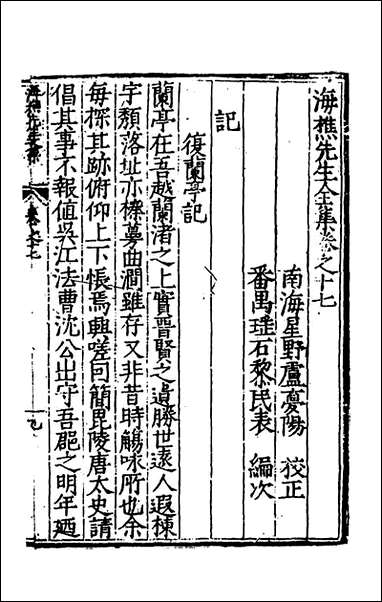 海樵先生全集卷之十七
南海星野盧夢陽 校正
番禺瑤石黎民表 編次
記
復蘭亭記
蘭亭在吾越蘭渚之上實晉賢之遺勝世遠人遐棟
宇頹落址亦榛蕪曲澗雖存又非昔時觴咏所也余
每探其跡俯仰上下悵焉興嗟囘簡毘陵唐太史請
倡其事不報値吳江法曹沈公出守吾郡之明年廼
海樵先生全集
卷之十七